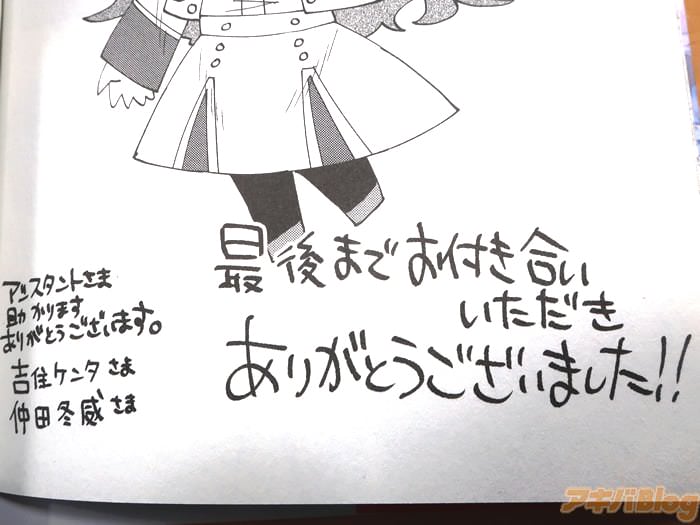 最後までお付き合い
いただき
ありがとうございました!!
アシスタントさま
助かります
ありがとうございます。
吉住ケンタさま
仲田冬威さま
アキバBlog